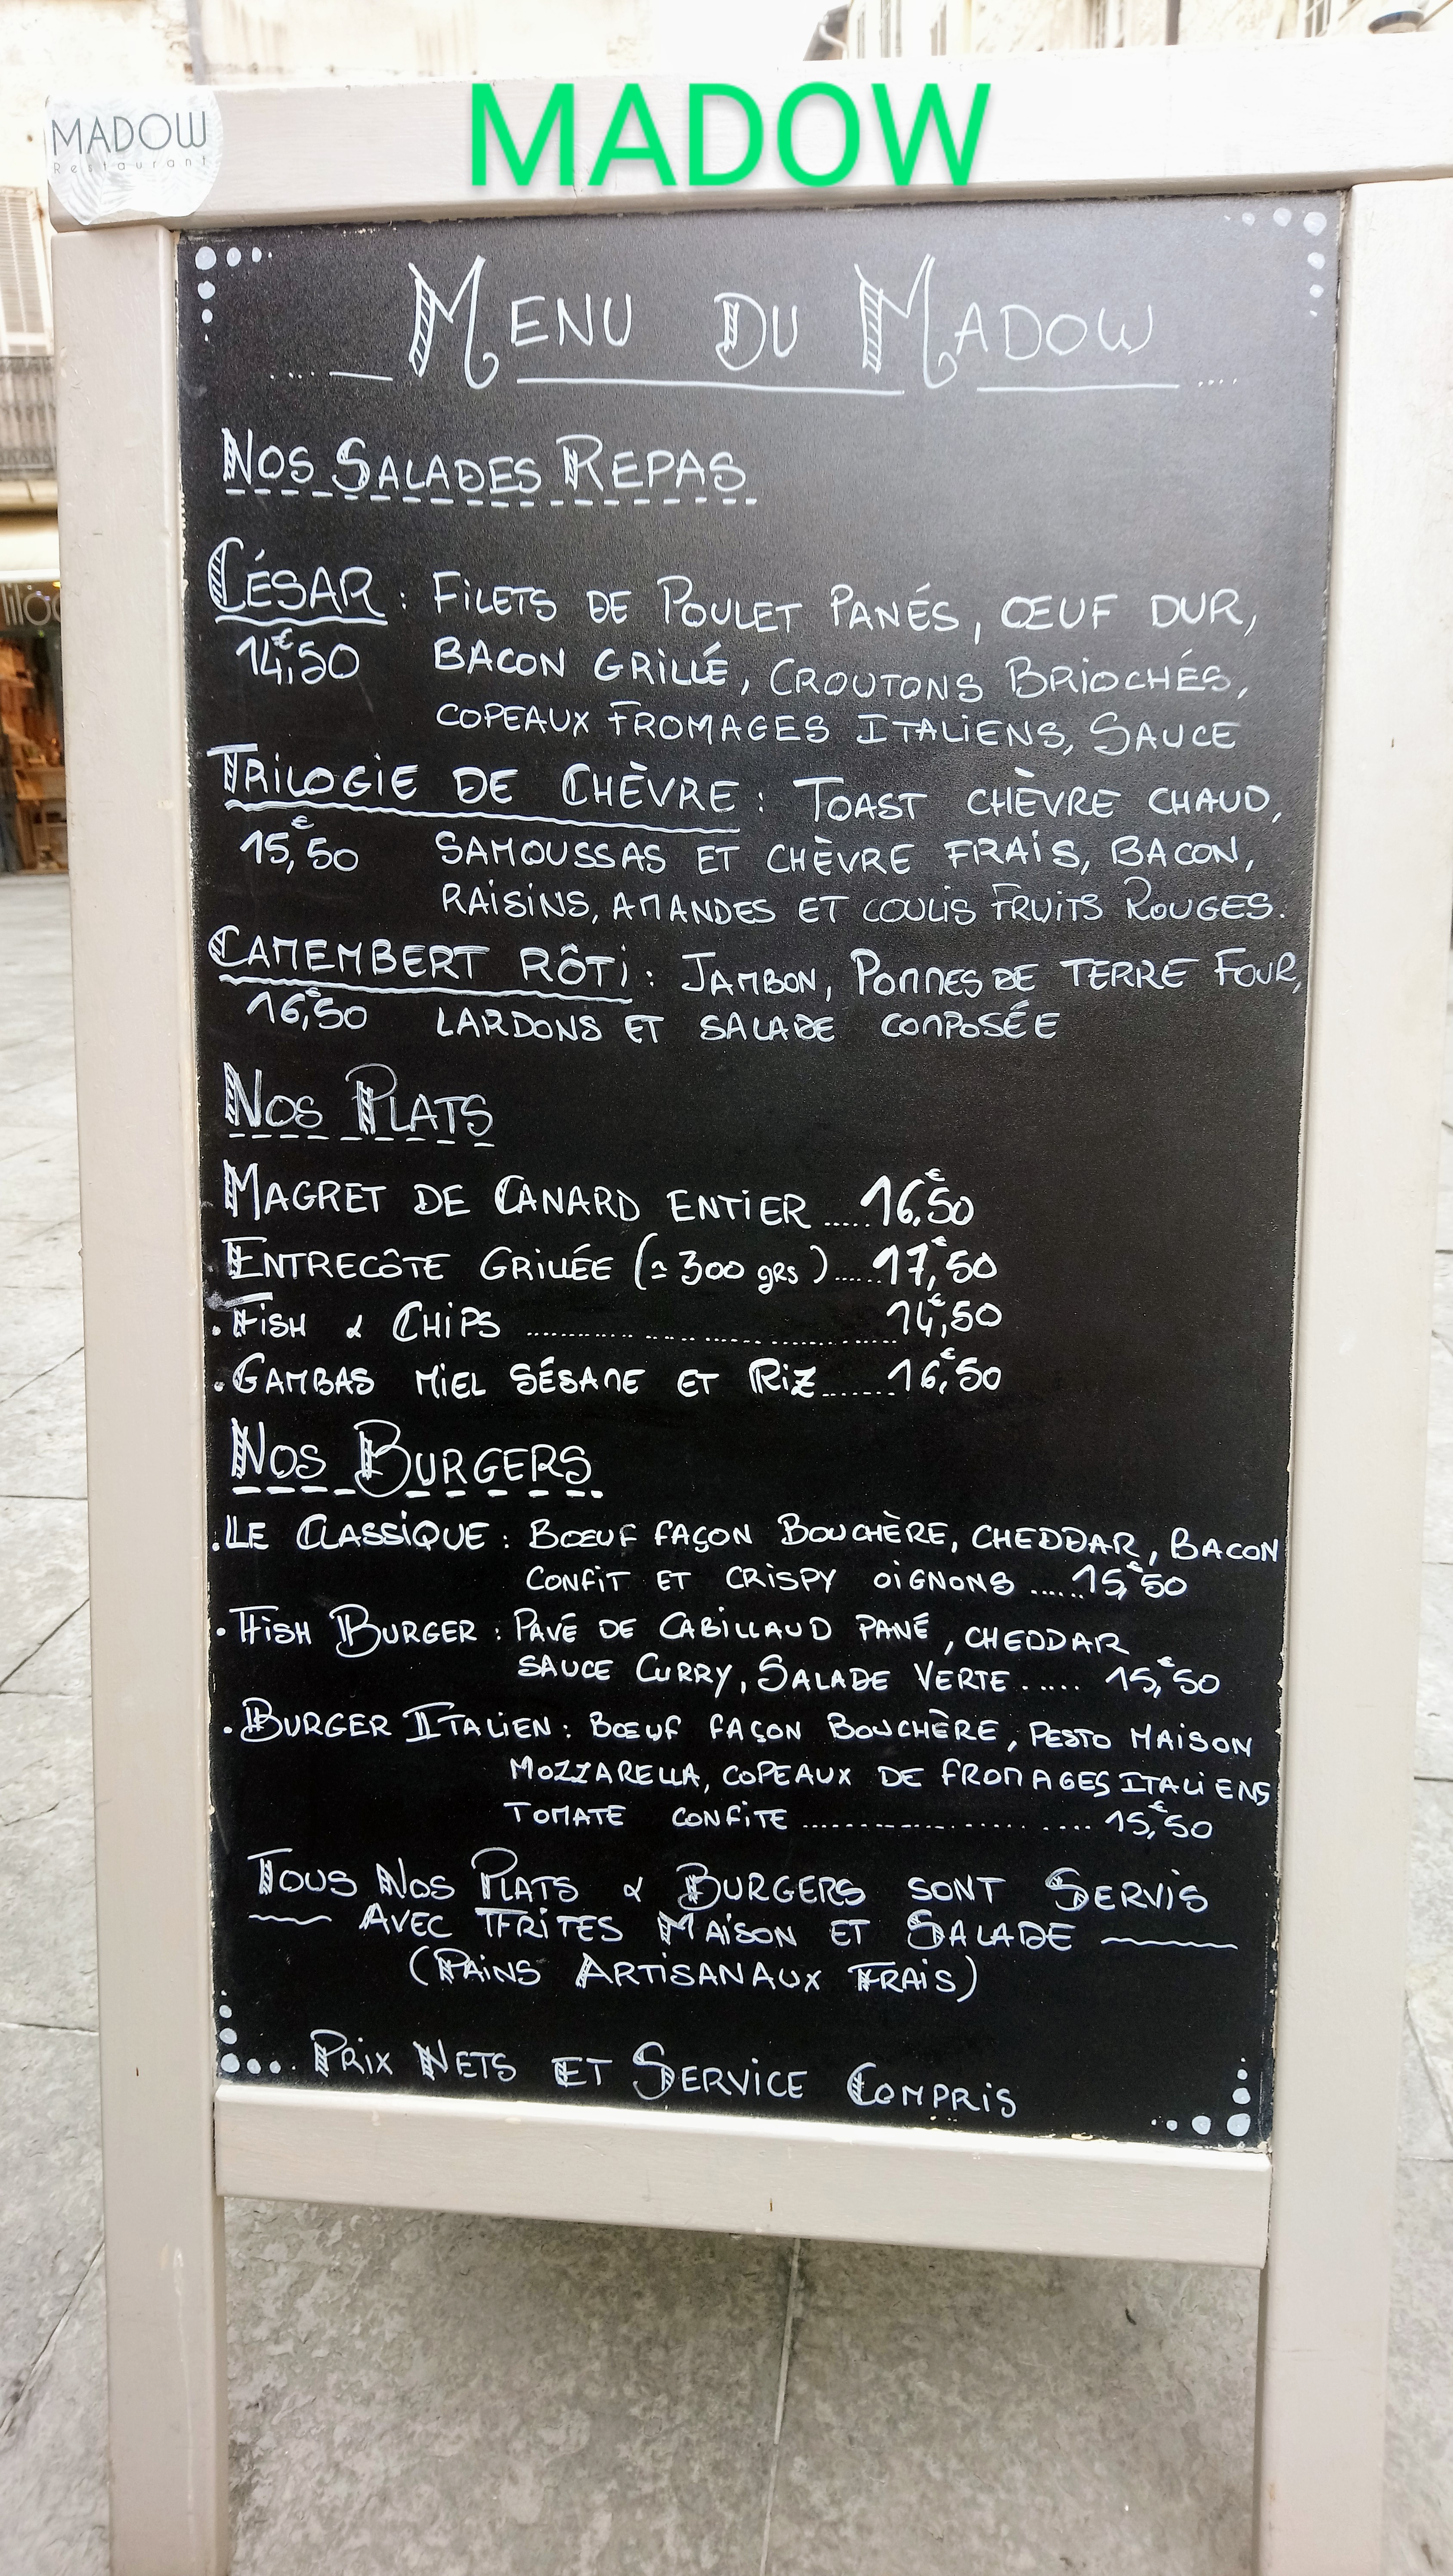 MADOW
MADOW
Restaurant
MENU DU MADOW
NOS SALADES REPAS
CÉSAR : FILETS DE POULET PANÉS, ŒUF DUR,
14,€50 BACON GRILLÉ, CROUTONS BRIOCHÉS,
COPEAUX FROMAGES ITALIENS, SAUCE
TRILOGIE DE CHÈVRE : TOAST CHÈVRE CHAUD,
15,€50 SAMOUSSAS ET CHÈVRE FRAIS, BACON,
RAISINS, AMANDES ET COULIS FRUITS ROUGES.
CAMEMBERT RÔTI : JAMBON, POMMES DE TERRE FOUR,
16,€50 LARDONS ET SALADE COMPOSÉE
NOS PLATS
MAGRET DE CANARD ENTIER ..... 16,€50
ENTRECÔTE GRILLÉE (≃ 300 grs) ..... 17,€50
. FISH & CHIPS ..... 14,€50
. GAMBAS MIEL SÉSAME ET RIZ ..... 16,€50
NOS BURGERS
. LE CLASSIQUE : BOEUF FAÇON BOUCHÈRE, CHEDDAR, BACON
CONFIT ET CRISPY OIGNONS ..... 15,€50
. FISH BURGER : PAVÉ DE CABILLAUD PANÉ, CHEDDAR
SAUCE CURRY, SALADE VERTE ..... 15,€50
. BURGER ITALIEN : BŒUF FAÇON BOUCHÈRE, PESTO MAISON
MOZZARELLA, COPEAUX DE FROMAGES ITALIENS
TOMATE CONFITE ..... 15,€50
TOUS NOS PLATS & BURGERS SONT SERVIS
AVEC FRITES MAISON ET SALADE
(PAINS ARTISANAUX FRAIS)
PRIX NETS ET SERVICE COMPRIS